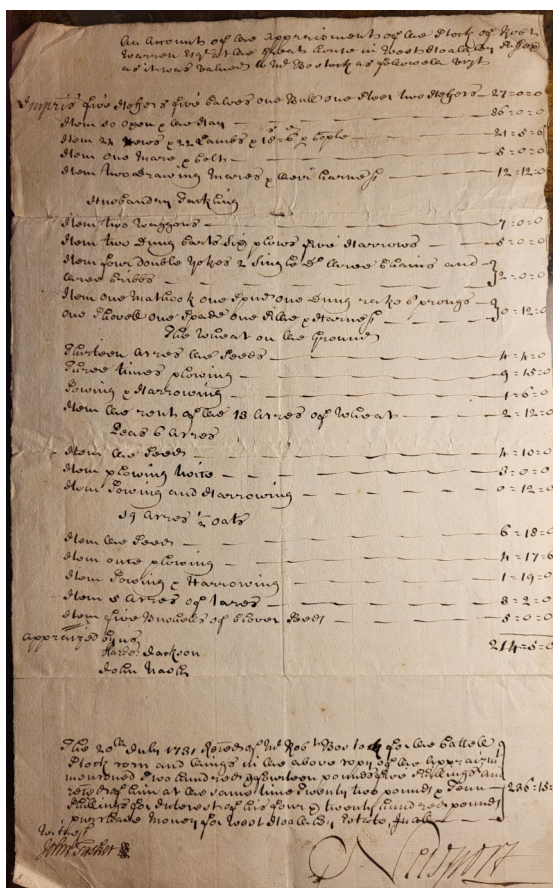 An Account of the Appraisment of the Stock of Robt
Warren Esqr at the Great house in West Sussex
as it was Valued to Mr Bostock as followeth vizt
Impris five Heifers five Calves one Bull one Steer two Heifers 27=0=0
Item 10 Oxen & the Hay 86=0=0
Item 24 Ewes & 22 Lambs
Item one Mare & Colt 5=0=0
Item two Drawing Mares & their harness 12=12=0
Husbandry Tackling
Item two Waggons 7=0=0
Item two Dung Carts Six plows five Harrows 8=0=0
Item four double yokes 2 Single Do three Chains and
three Cribbs 2=0=0
Item One Mathook one Spud one Dung rake 6 prongs
one Shovel one Spade one & Harness 0=12=0
The Wheat on the Ground
Thirteen Acres the Seed 4=4=0
Three times plowing 9=15=0
Sowing & Harrowing 1=6=0
Item the rent of the 13 Acres of Wheat 2=12=0
Peas 6 Acres
Item the Seed 4=10=0
Item plowing twice 3=0=0
Item Sowing and Harrowing 0=12=0
19 Acres 1/2 Oats
Item the Seed 6=18=0
Item once plowing 4=17=6
Item Sowing & Harrowing 1=19=0
Item 5 Acres of Tares 3=2=0
Item five Bushells of Clover Seed 5=0=0
Appraized by us 214=5=0
Jackson
John Nash
The 20th July 1731 Receed of Mr Robt Bostock for the Cattell
Stock corn and things in the above Copy of the Appraizmt
mentioned Two hundred & fourteen pounds five Shillings and
receed of him at the same time Twenty two pounds & Tenn 236=15=
Shillings for Interest of his four & twenty hundred pounds
purchase Money for West Estate, I say
Witness
John Tasker
Newport